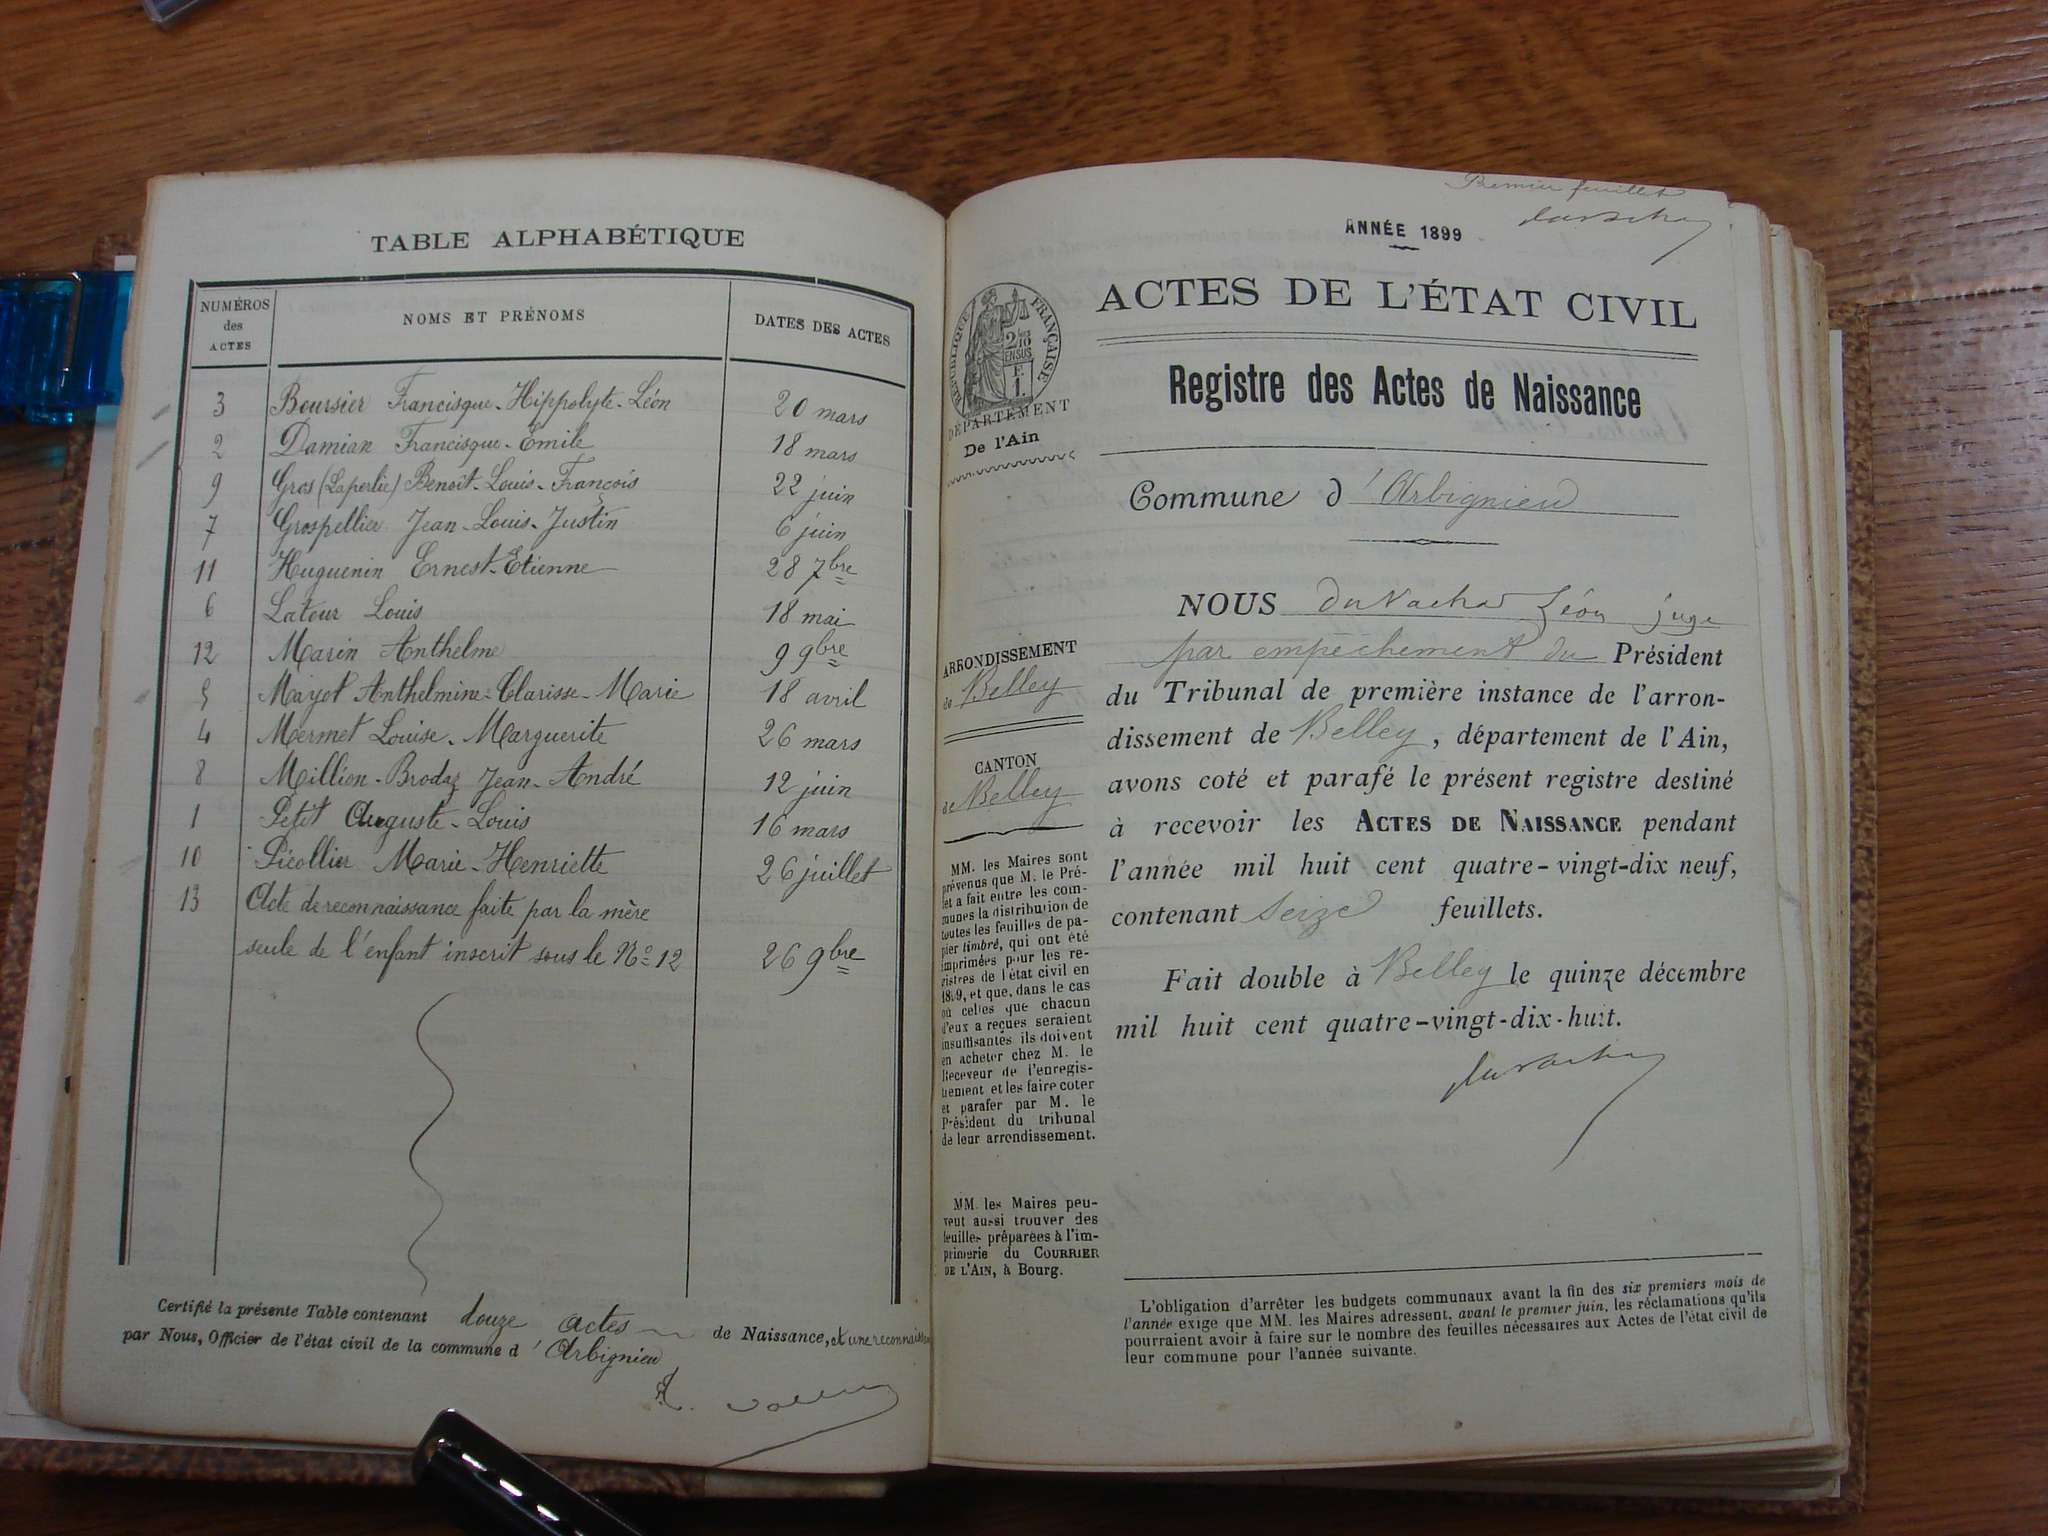 TABLE ALPHABÉTIQUE
NUMÉROS des ACTES NOMS ET PRÉNOMS DATES DES ACTES
3 Boursier Francisque-Hippolyte-Léon 20 mars
2 Damian Francisque-Emile 18 mars
9 Gros (Laperlie) Benoît-Louis-François 22 juin
7 Grospellier Jean-Louis-Justin 6 juin
11 Huguenin Ernest-Etienne 28 7bre
6 Latour Louis 18 mai
12 Marin Anthelme 9 9bre
5 Mayot Anthelmine-Clarisse-Marie 18 avril
4 Mermet Louise-Marguerite 26 mars
8 Million-Brodaz Jean-André 12 juin
1 Petit Auguste-Louis 16 mars
10 Picollier Marie-Henriette 26 juillet
13 Acte de reconnaissance faite par la mère
seule de l'enfant inscrit sous le No 12 26 9bre
Certifié la présente Table contenant douze actes de Naissance, et une reconnaissance
par Nous, Officier de l'état civil de la commune d'Arbignieu
Premier feuillet
ANNÉE 1899
ACTES DE L'ÉTAT CIVIL
RÉPUBLIQUE FRANÇAISE
2/10 EN SUS
F. 1.
DÉPARTEMENT
De l'Ain
Registre des Actes de Naissance
Commune d'Arbignieu
NOUS Léon juge
par empêchement du Président
du Tribunal de première instance de l'arron-
dissement de Belley, département de l'Ain,
avons coté et parafé le présent registre destiné
à recevoir les ACTES DE NAISSANCE pendant
l'année mil huit cent quatre-vingt-dix neuf,
contenant seize feuillets.
Fait double à Belley le quinze décembre
mil huit cent quatre-vingt-dix-huit.
ARRONDISSEMENT
de Belley
CANTON
de Belley
MM. les Maires sont
prévenus que M. le Pré-
fet a fait entre les com-
munes la distribution de
toutes les feuilles de pa-
pier timbré, qui ont été
imprimées pour les re-
gistres de l'état civil en
1899, et que, dans le cas
où celles que chacun
d'eux a reçues seraient
insuffisantes ils doivent
en acheter chez M. le
Receveur de l'enregis-
trement et les faire coter
et parafer par M. le
Président du tribunal
de leur arrondissement.
MM. les Maires peu-
vent aussi trouver des
feuilles préparées à l'im-
primerie du COURRIER
DE L'AIN, à Bourg.
L'obligation d'arrêter les budgets communaux avant la fin des six premiers mois de
l'année exige que MM. les Maires adressent, avant le premier juin, les réclamations qu'ils
pourraient avoir à faire sur le nombre des feuilles nécessaires aux Actes de l'état civil de
leur commune pour l'année suivante.